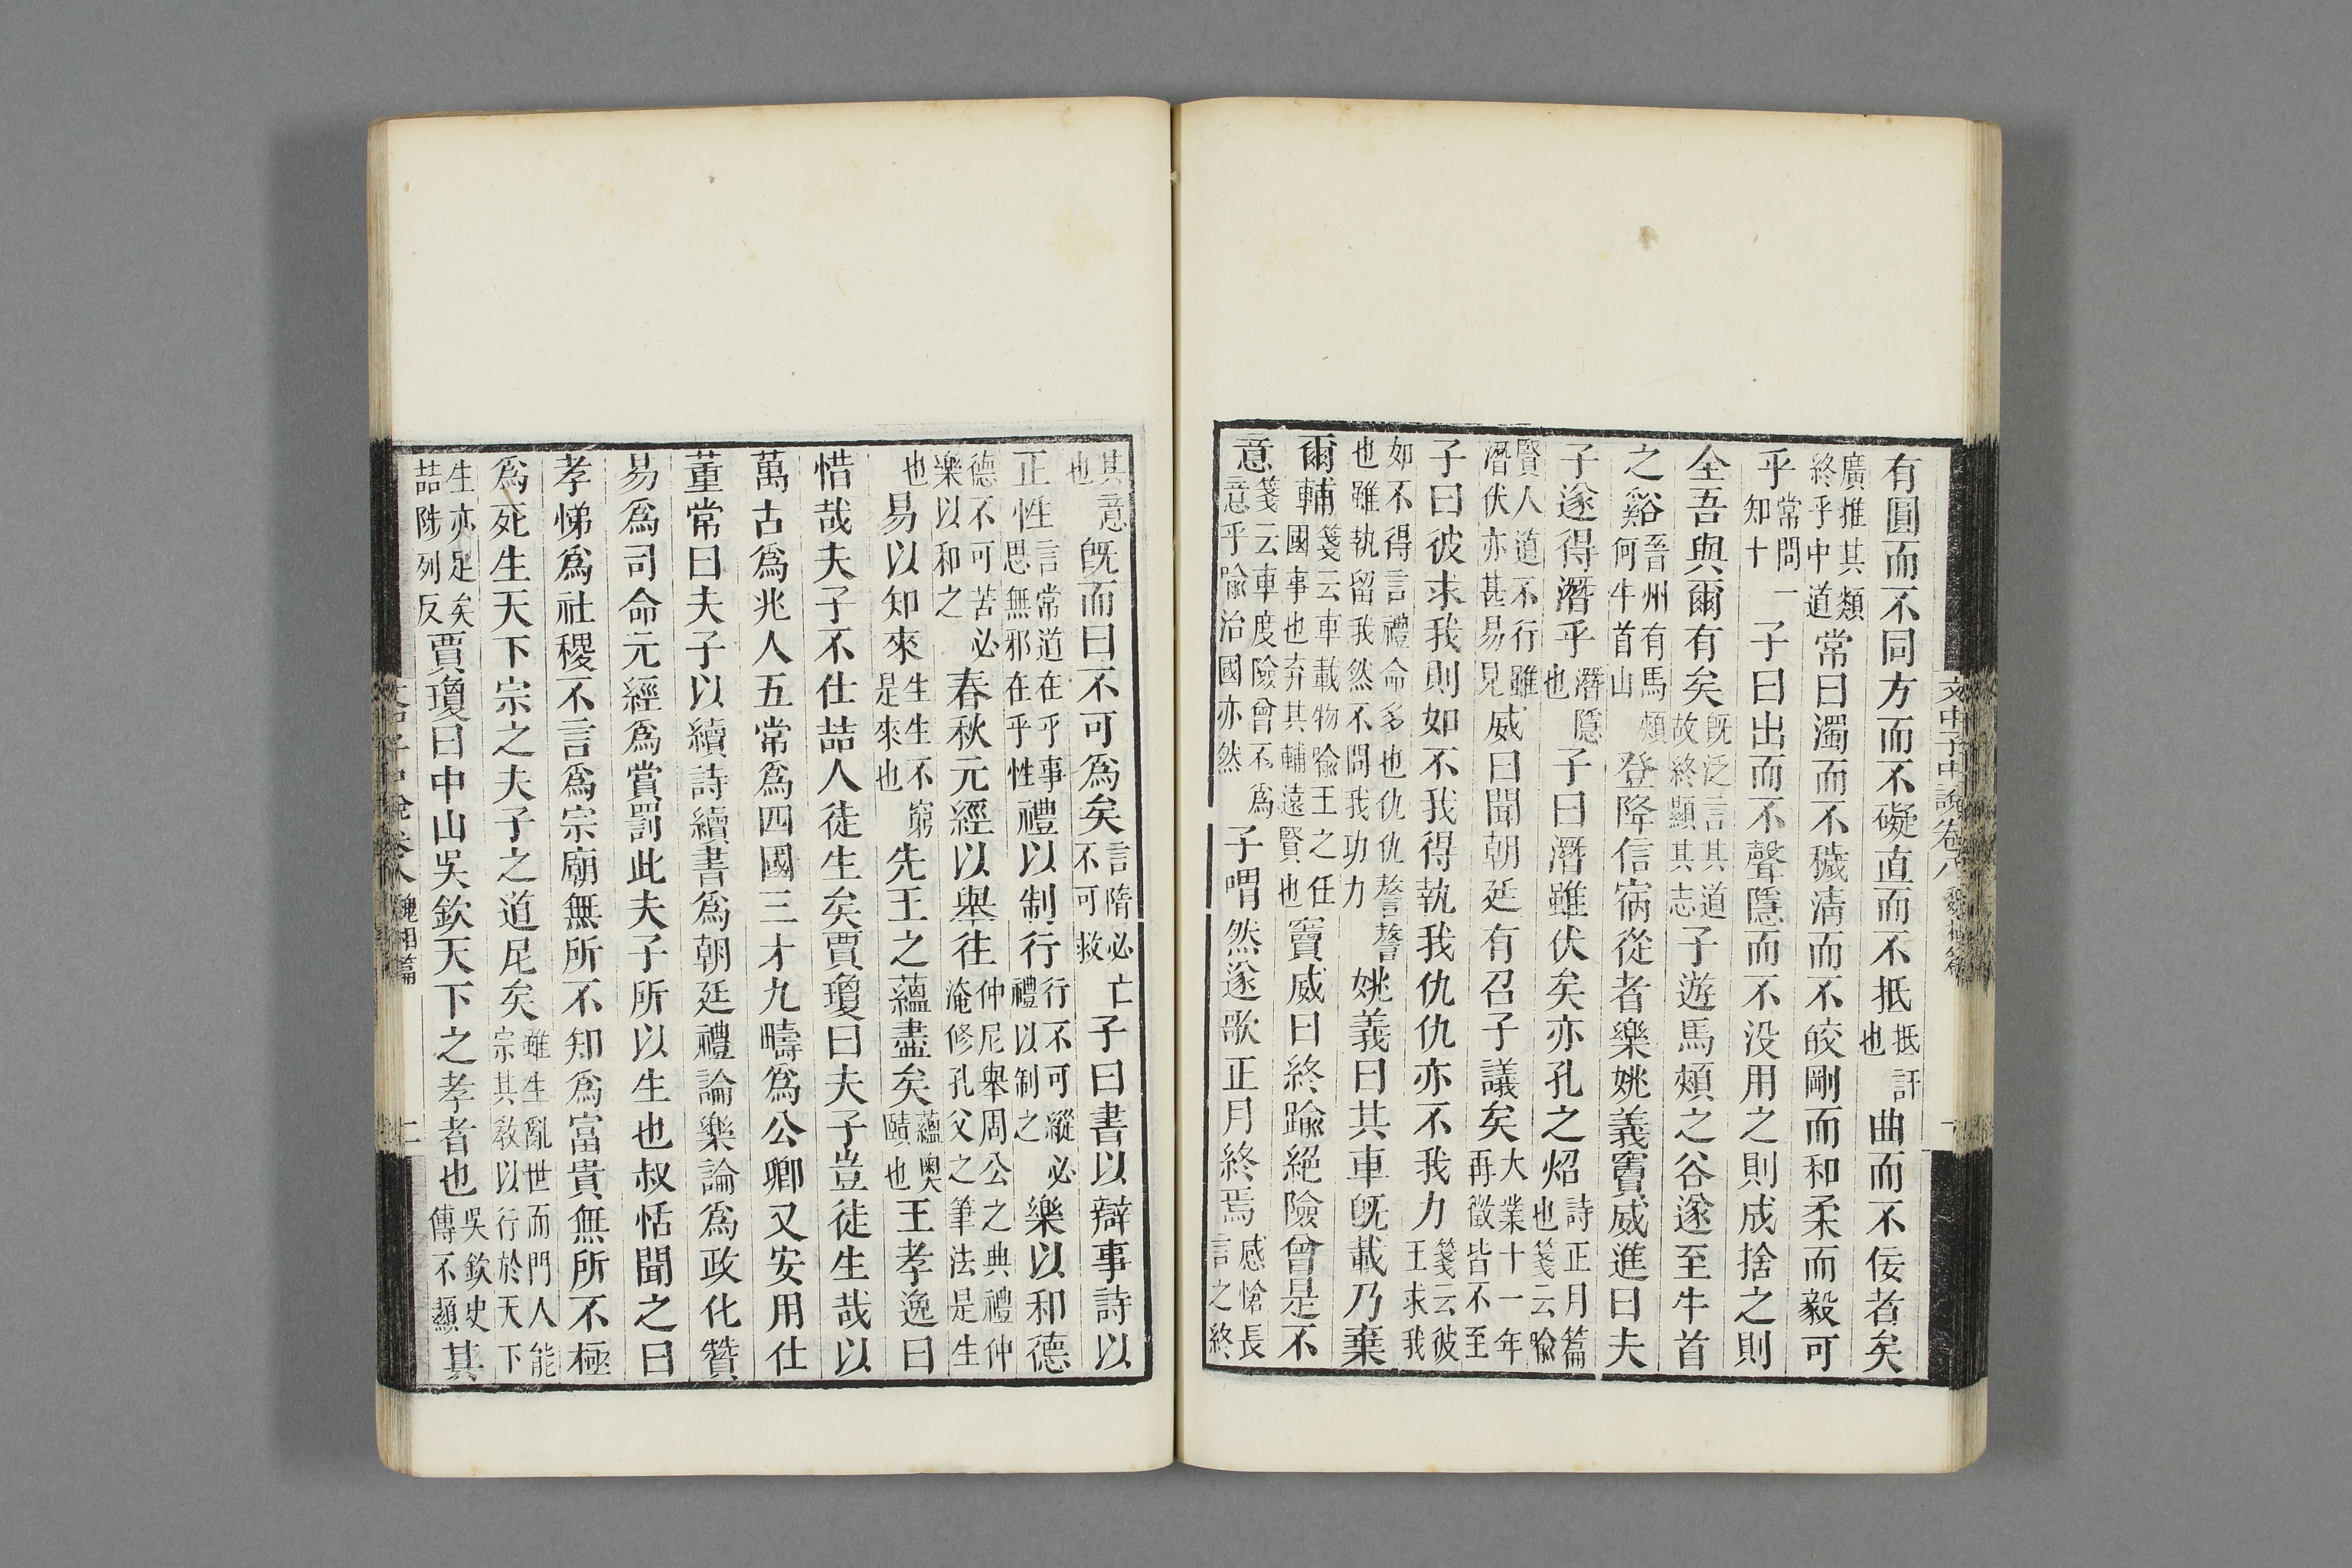 有圓而不同方而不礙直而不抵抵訐也曲而不佞者矣
廣推其類終乎中道常曰濁而不穢清而不皎剛而和柔而毅可
乎常問一知十子曰出而不聲隱而不没用之則成捨之則
全吾與爾有矣旣泛言其道故終顯其志子遊馬頰之谷遂至牛首
之谿晉州有馬頰何牛首山登降信宿從者樂姚義竇威進曰夫
子遂得潛乎潛隱也子曰潛雖伏矣亦孔之炤詩正月篇也箋云喩
賢人道不行雖潛伏亦甚易見威曰聞朝廷有召子議矣大業十一年再徵皆不至
子曰彼求我則如不我得執我仇仇亦不我力箋云彼王求我
如不得言禮命多也仇仇謷謷也雖執留我然不問我功力姚義曰其車旣載乃棄
爾輔箋云車載物喩王之任國事也弃其輔遠賢也竇威曰終踰絕險曾是不
意箋云車度險曾不爲意乎喩治國亦然子喟然遂歌正月終焉感愴長言之終
其意也旣而曰不可爲矣言隋必亡不可救子曰書以辯事詩以
正性言常道在乎事思無邪在乎性禮以制行行不可縱必禮以制之樂以和德
德不可苦必樂以和之春秋元經以舉往仲尼舉周公之典禮仲淹修孔父之筆法是生
也易以知來生生不窮是來也先王之蘊盡矣蘊奧賾也王孝逸曰
惜哉夫子不仕喆人徒生矣賈瓊曰夫子豈徒生哉以
萬古爲兆人五常爲四國三才九疇爲公卿又安用仕
董常曰夫子以續詩續書爲朝廷禮論樂論爲政化贊
易爲司命元經爲賞罰此夫子所以生也叔恬聞之曰
孝悌爲社稷不言爲宗廟無所不知爲富貴無所不極
爲死生天下宗之夫子之道足矣雖生亂世而門人能宗其敎以行於天下
生亦足矣喆陟列反賈瓊曰中山吳欽天下之孝者也吳欽史傳不顯其
文中子中說卷八 魏相篇 十一